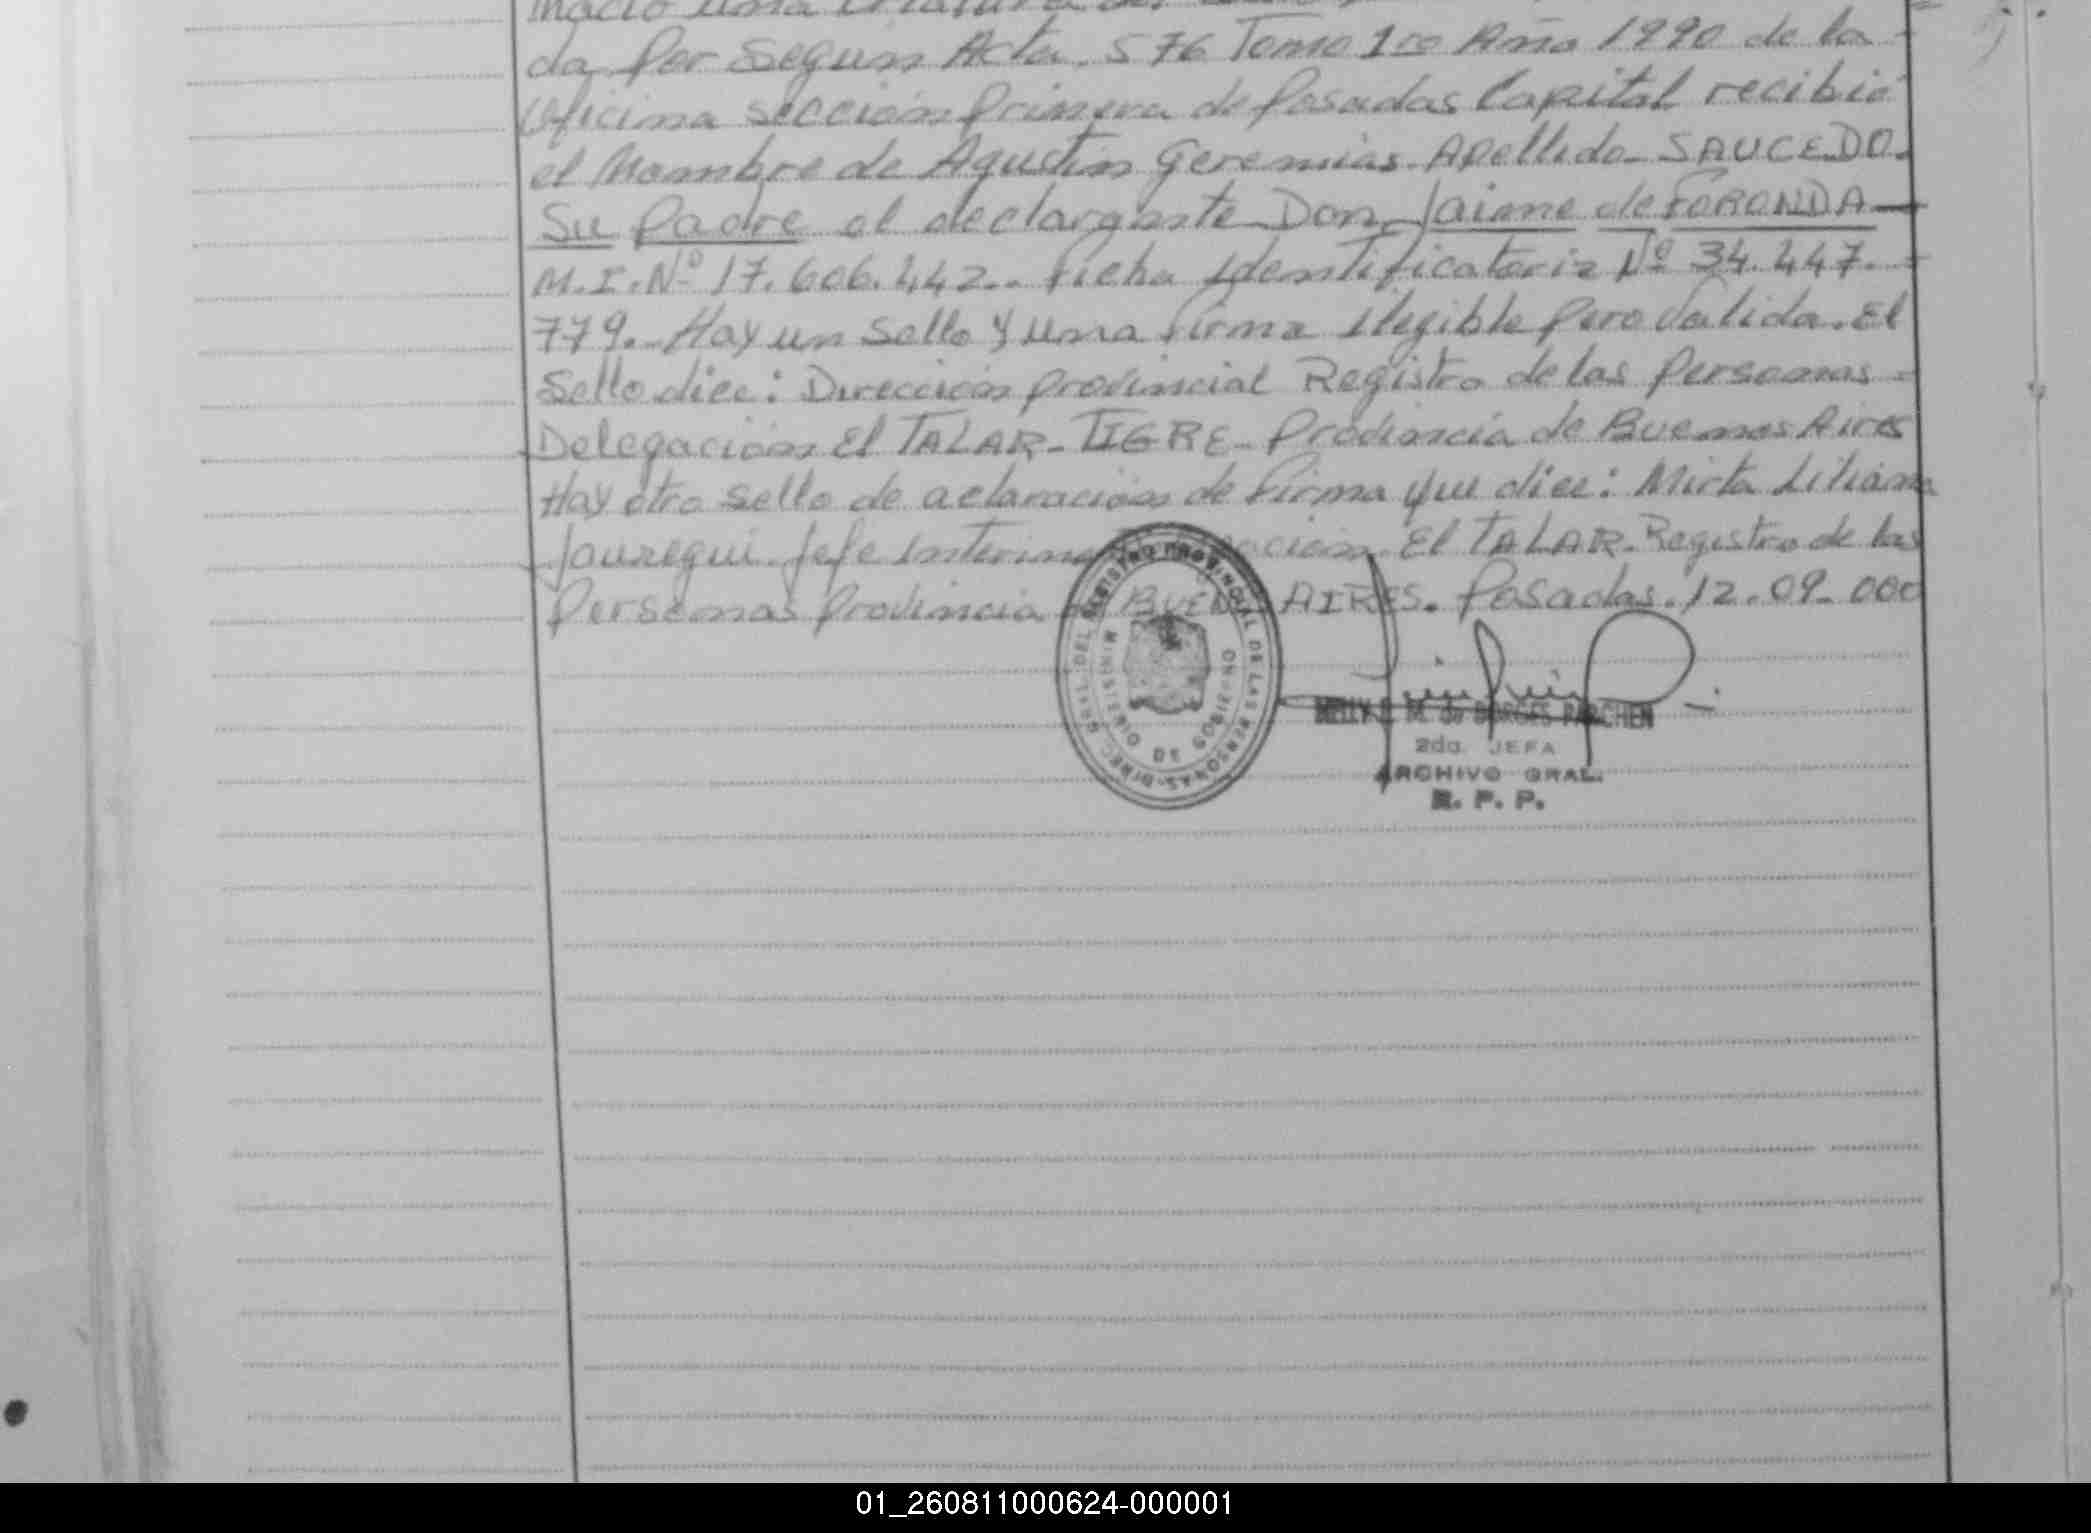 nacio una criatura del
da por Segun Acta. 576 Tomo 1ro Año 1990 de la
Oficina sección Primera de Posadas Capital recibió
el Nombre de Agustin Geremias. Apellido SAUCEDO.
Su Padre el declarante Don Jaime de FORONDA
M.I. Nº 17.606.442.. Ficha Identificatoria Nº 34.447.
779. Hay un Sello y una Firma Ilegible Pero Valida. El
Sello dice: Dirección Provincial Registro de las Personas
Delegación El TALAR - TIGRE - Provincia de Buenos Aires
Hay otro Sello de aclaración de Firma que dice: Mirta Liliana
Jauregui. Jefe Interin ación. El TALAR - Registro de las
Personas Provincia BUEN AIRES. Posadas. 12.09.000
GRAL. DEL REGISTRO PROVINCIAL DE LAS PERSONAS - DIREC.
MINISTERIO DE GOBIERNO
M. de BORGES PARCHEN
2da. JEFA
ARCHIVO GRAL.
R. P. P.
01_260811000624-000001